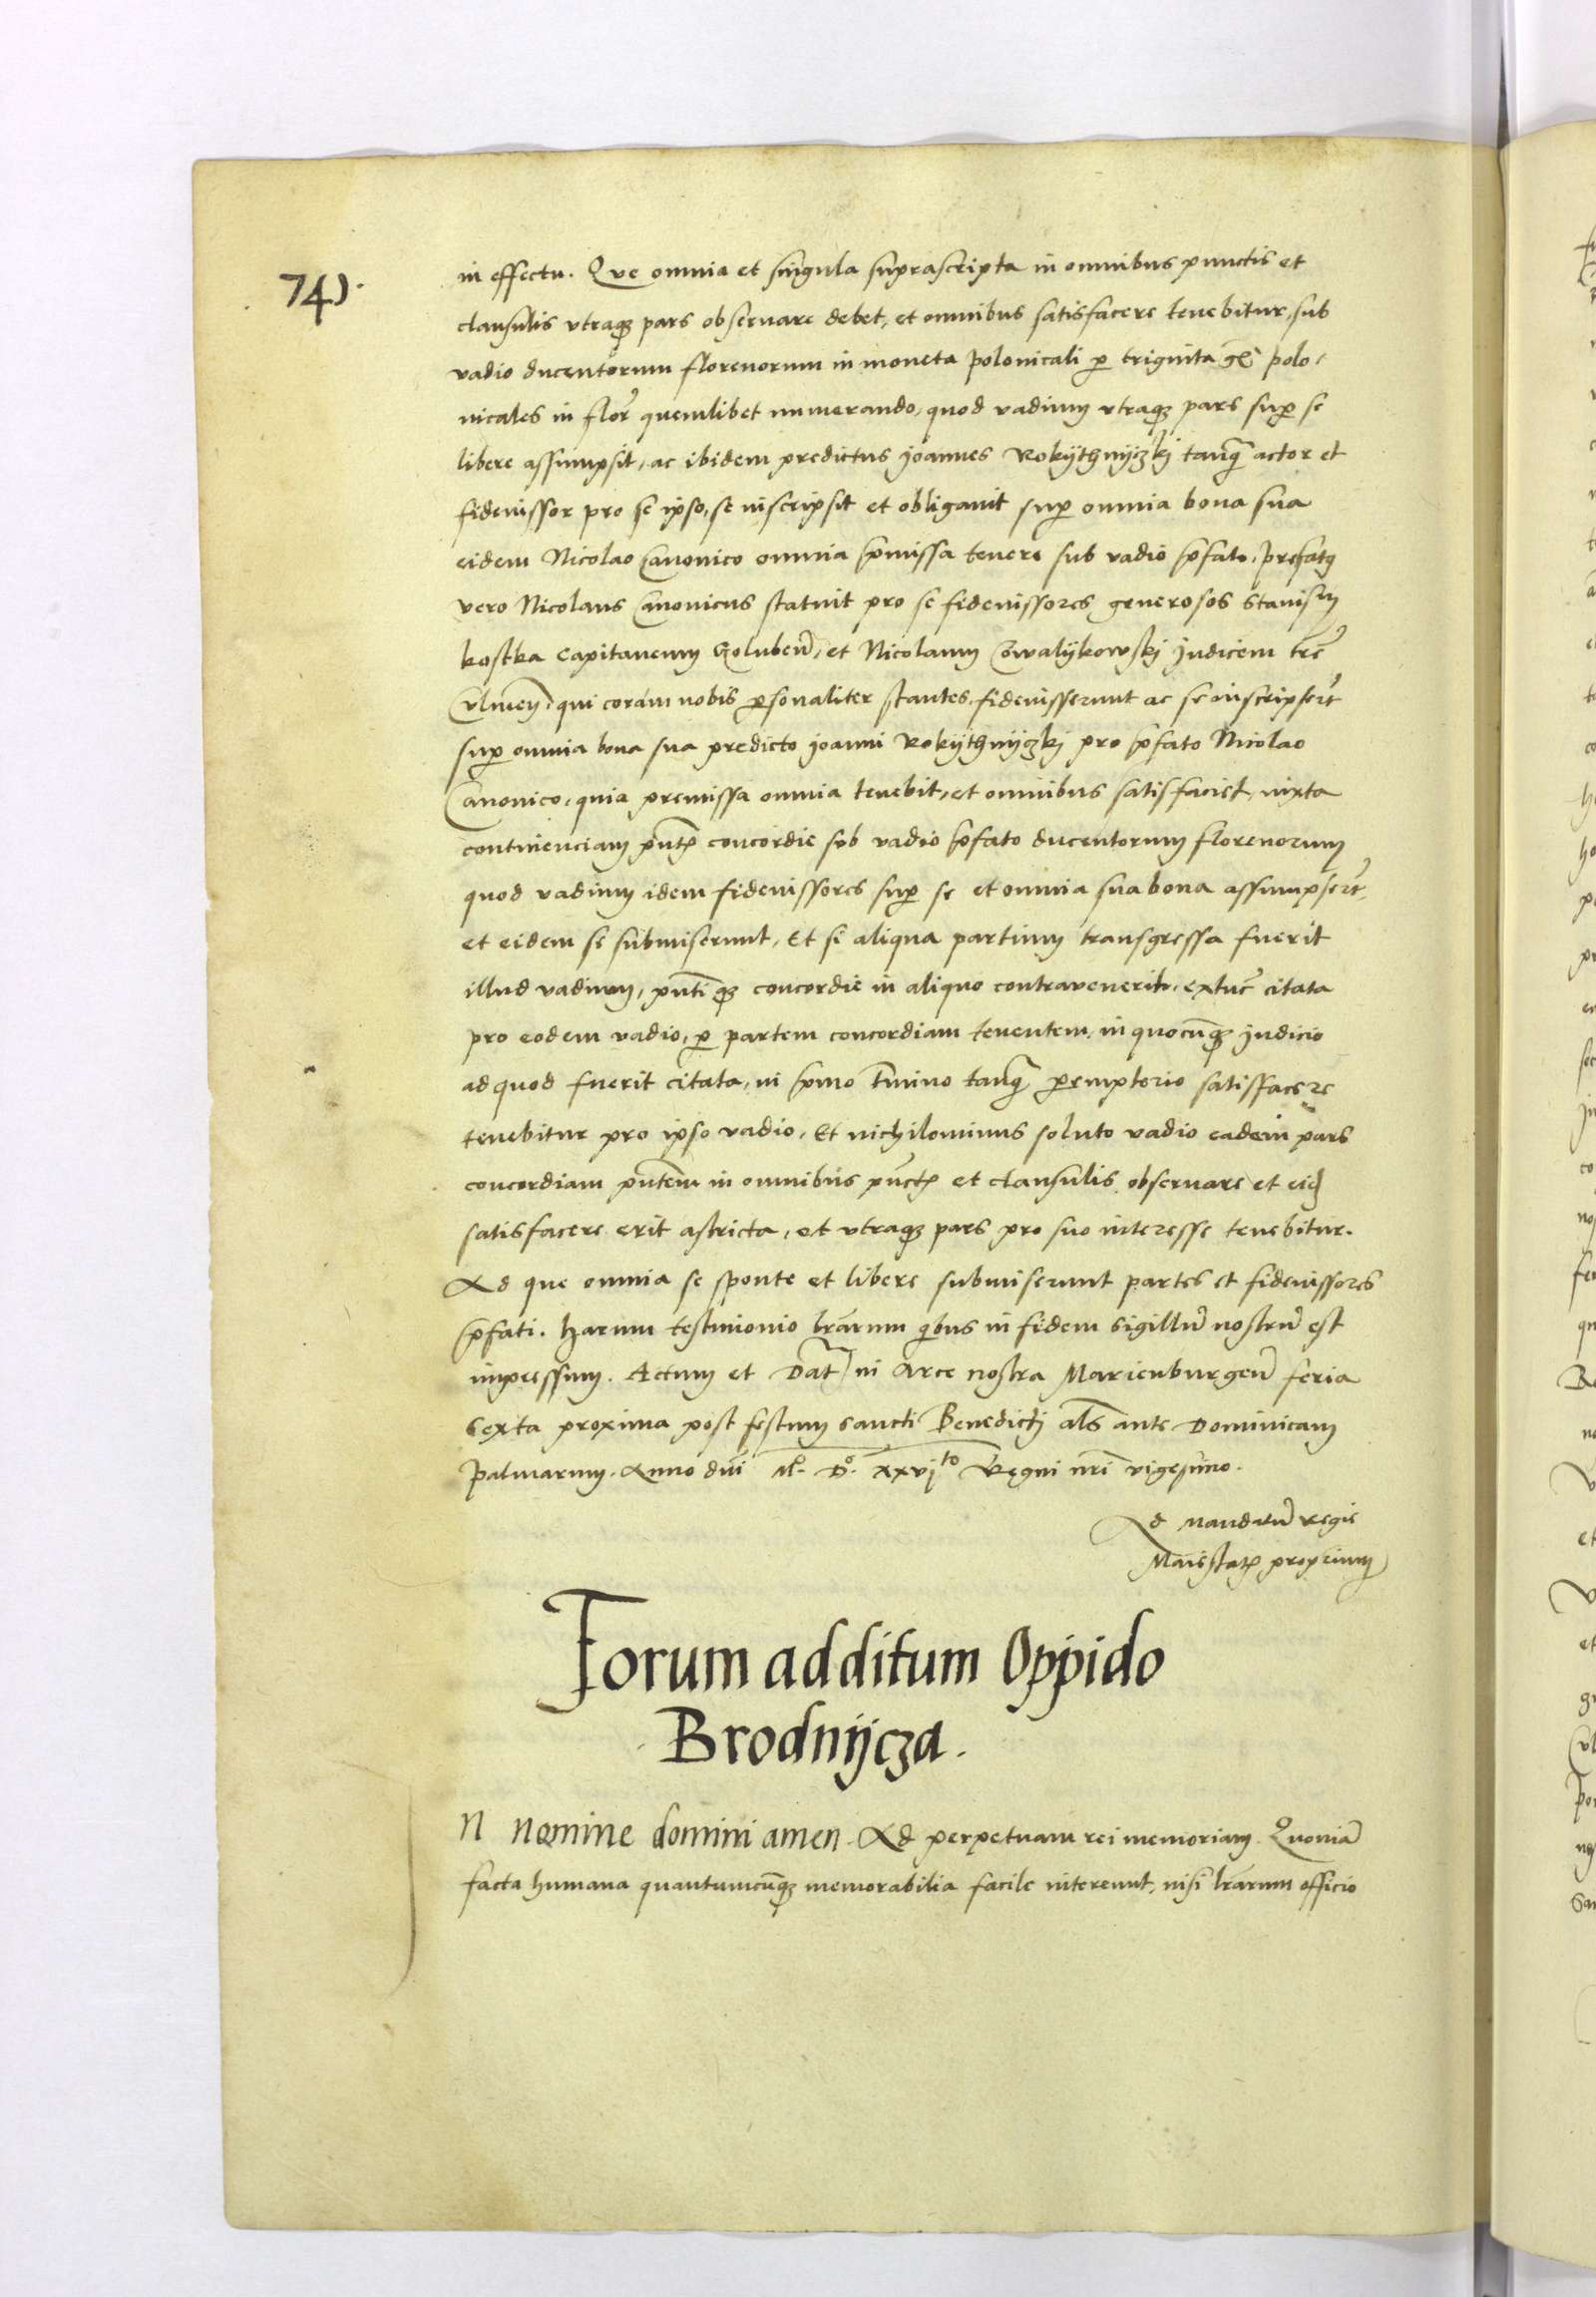 74).
in effectu. Que omnia et singula suprascripta in omnibus punctis et
clausulis utraqꝫ pars obseruare debet, et omnibus satisfacere tenebitur, sub
vadio ducentorum florenorum in moneta polonicali ꝑ triginta gͤ polo-
nicales in flor̃ quemlibet numerando, quod vadium utraqꝫ pars suꝑ se
libere assumpsit, ac ibidem predictus joannes Rokijthnijczkj tanqͫ actor et
fideiussor pro se ipso, se inscripsit et obligauit suꝑ omnia bona sua
eidem Nicolao Canonico omnia p̃missa tenere sub vadio p̃fato, prefatꝰ
vero Nicolaus Canonicus statuit pro se fideiussores generosos Stanislm
kostka Capitaneum Golubeñ, et Nicolaum Cowalijkowskj Judicem trẽ
Culmeñ, qui coram nobis ꝑsonaliter stantes, fideiusserunt ac se inscripsert̃
suꝑ omnia bona sua predicto joanni Rokijthnijczkj pro p̃fato Nicolao
Canonico, quia premissa omnia tenebit, et omnibus satisfaciet, iuxta
continenciam p̃ntꝭ concordie sub vadio p̃fato ducentorum florenorum
quod vadium idem fideiussores suꝑ se et omnia sua bona assumpsert̃,
et eidem se submiserunt, Et si aliqua partium transgressa fuerit
illud vadium, p̃ntiqꝫ concordie in aliquo contravenerit, extunc̃ citata
pro eodem vadio, ꝑ partem concordiam tenentem, in quocũqꝫ judicio
ad quod fuerit citata, in p̃mo t̃mino tanqͫ ꝑemptorio satisfacere
tenebitur pro ipso vadio, Et nichilominus soluto vadio eadem pars
concordiam p̃ntem in omnibus pũctꝭ et clausulis obseruare et eid̃
satisfacere erit astricta, et utraqꝫ pars pro suo interesse tenebitur.
Ad que omnia se sponte et libere submiserunt partes et fideiussores
p̃fati. Harum testimonio lr̃arum qͥbus in fidem sigillũ nostrũ est
impressum. Actum et Dat̃ in Arce nostra Marienburgeñ feria
Sexta proxima post festum sancti Benedictj als̃ ante Dominicam
palmarum. Anno dñi Mͦ. Dͦ. xxvjᵗᵒ Regni nr̃i vigesimo.
Ad mandatũ Regie
Maiestatꝭ proprium
Forum additum Oppido
Brodnijcza.
N Nomine domini amen. Ad perpetuam rei memoriam. Quoniã
facta humana quantumcũqꝫ memorabilia facile intereunt, nisi lr̃arum officio